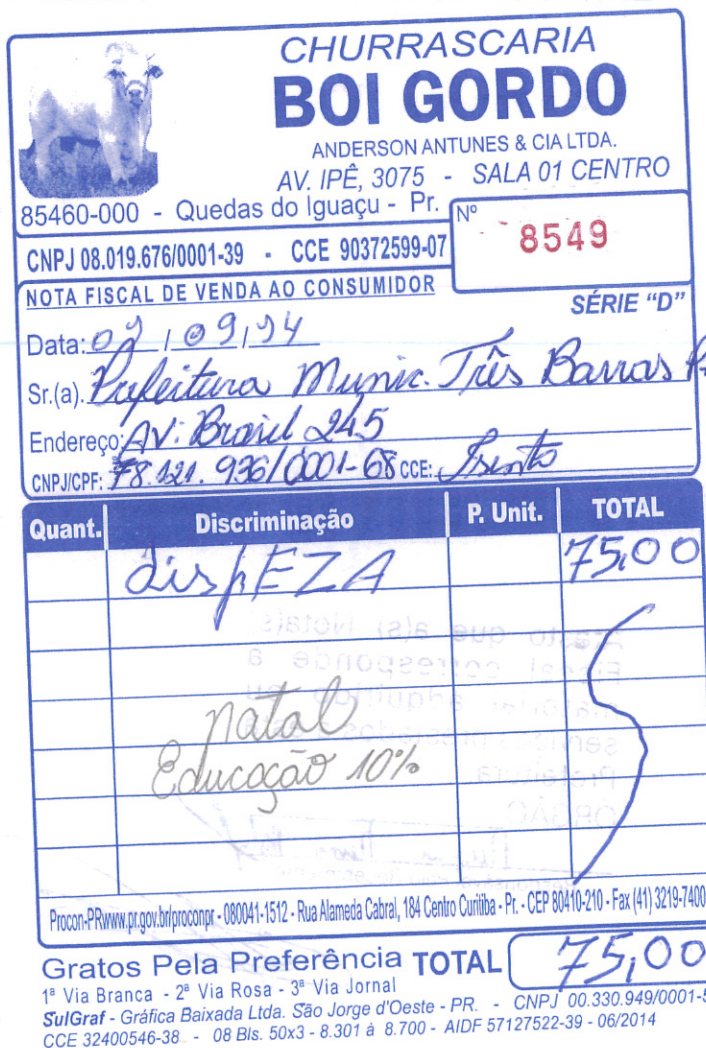 CHURRASCARIA
BOI GORDO
ANDERSON ANTUNES & CIA LTDA.
AV. IPÊ, 3075 - SALA 01 CENTRO
85460-000 - Quedas do Iguaçu - Pr.
Nº 8549
CNPJ 08.019.676/0001-39 - CCE 90372599-07
NOTA FISCAL DE VENDA AO CONSUMIDOR
SÉRIE “D”
Data: /09/
Sr.(a). Prefeitura Munic. Três Barras
Endereço: AV. Brasil 245
CNPJ/CPF: 78.121.936/0001-68 CCE: Isento
Quant. Discriminação P. Unit. TOTAL
dispEZA 75,00
Atesto que a(s) Nota(s)
Fiscal corresponde a
material adquirido ou
serviços prestados a esta
Prefeitura
ORGÃO
natal
Educação 10%
Procon-PRwww.pr.gov.br/proconpr - 080041-1512 - Rua Alameda Cabral, 184 Centro Curitiba - Pr. - CEP 80410-210 - Fax (41) 3219-7400
Gratos Pela Preferência TOTAL 75,00
1ª Via Branca - 2ª Via Rosa - 3ª Via Jornal
SulGraf - Gráfica Baixada Ltda. São Jorge d'Oeste - PR. - CNPJ 00.330.949/0001-5
CCE 32400546-38 - 08 Bls. 50x3 - 8.301 á 8.700 - AIDF 57127522-39 - 06/2014